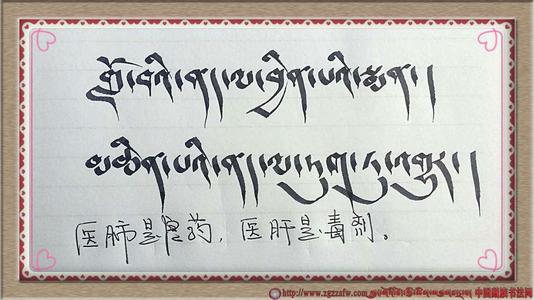 གློ་བའི་ནད་ལ་བྱིན་པའི་སྨན།
མཆིན་པའི་ནད་ལ་དུག་ཏུ་འགྱུར།
医肺是良药，医肝是毒剂。
http://www.zgzzsfw.com 中國藏族书法网